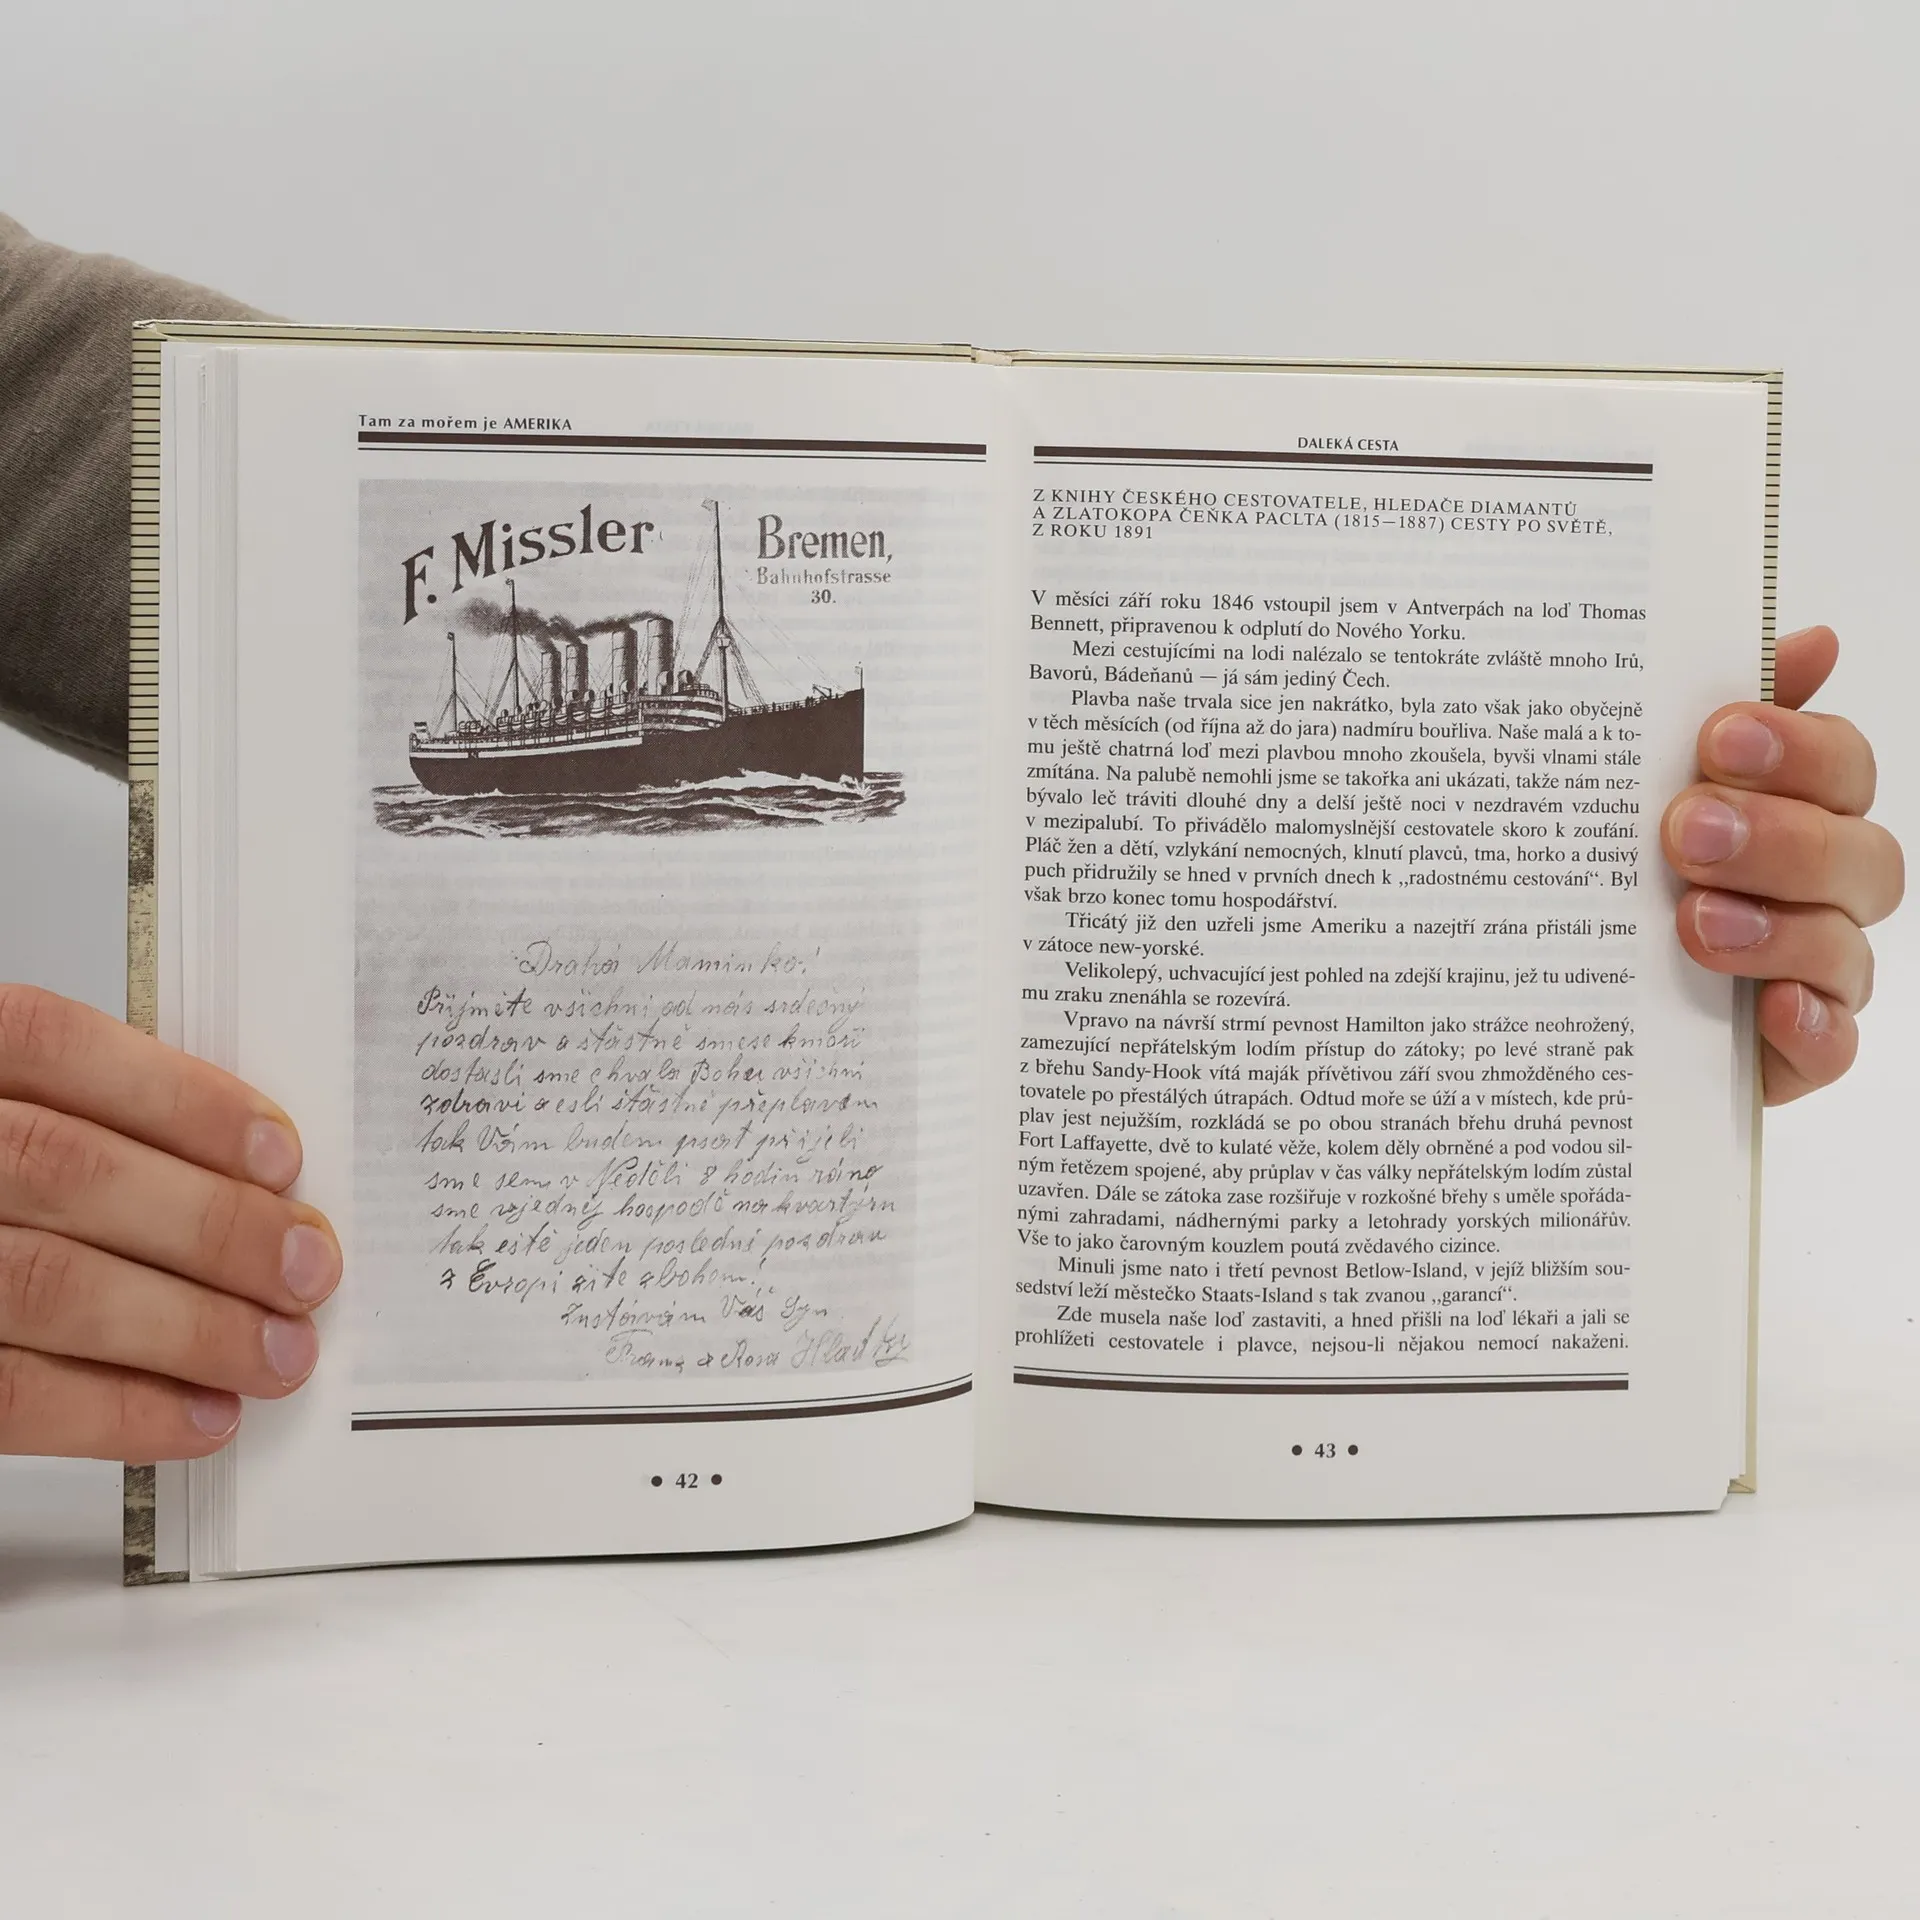 Tam za mořem je AMERIKA
F. Missler
Bremen,
Bahnhofstrasse
30.
Drahá Maminko!
Přijměte všichni od nás srdečný
pozdrav a štastně smese kmoři
dostasli sme chvala Bohu všichni
zdravi a esli štastně přeplavem
tak Vám budem psat přijeli
sme sem v Neděli 8 hodin ráno
sme vjednej hospodě na kvartýru
tak eště jeden poslední pozdrav
z Evropi zite zbohem!
Zustávám Váš Syn
Franz a Rosa
• 42 •
DALEKÁ CESTA
Z KNIHY ČESKÉHO CESTOVATELE, HLEDAČE DIAMANTŮ
A ZLATOKOPA ČEŇKA PACLTA (1815—1887) CESTY PO SVĚTĚ,
Z ROKU 1891
V měsíci září roku 1846 vstoupil jsem v Antverpách na loď Thomas
Bennett, připravenou k odplutí do Nového Yorku.
Mezi cestujícími na lodi nalézalo se tentokráte zvláště mnoho Irů,
Bavorů, Bádeňanů — já sám jediný Čech.
Plavba naše trvala sice jen nakrátko, byla zato však jako obyčejně
v těch měsících (od října až do jara) nadmíru bouřliva. Naše malá a k to-
mu ještě chatrná loď mezi plavbou mnoho zkoušela, byvši vlnami stále
zmítána. Na palubě nemohli jsme se takořka ani ukázati, takže nám nez-
bývalo leč tráviti dlouhé dny a delší ještě noci v nezdravém vzduchu
v mezipalubí. To přivádělo malomyslnější cestovatele skoro k zoufání.
Pláč žen a dětí, vzlykání nemocných, klnutí plavců, tma, horko a dusivý
puch přidružily se hned v prvních dnech k „radostnému cestování“. Byl
však brzo konec tomu hospodářství.
Třicátý již den uzřeli jsme Ameriku a nazejtří zrána přistáli jsme
v zátoce new-yorské.
Velikolepý, uchvacující jest pohled na zdejší krajinu, jež tu udivené-
mu zraku znenáhla se rozevírá.
Vpravo na návrší strmí pevnost Hamilton jako strážce neohrožený,
zamezující nepřátelským lodím přístup do zátoky; po levé straně pak
z břehu Sandy-Hook vítá maják přívětivou září svou zhmožděného ces-
tovatele po přestálých útrapách. Odtud moře se úží a v místech, kde prů-
plav jest nejužším, rozkládá se po obou stranách břehu druhá pevnost
Fort Laffayette, dvě to kulaté věže, kolem děly obrněné a pod vodou sil-
ným řetězem spojené, aby průplav v čas války nepřátelským lodím zůstal
uzavřen. Dále se zátoka zase rozšiřuje v rozkošné břehy s uměle spořáda-
nými zahradami, nádhernými parky a letohrady yorských milionářův.
Vše to jako čarovným kouzlem poutá zvědavého cizince.
Minuli jsme nato i třetí pevnost Betlow-Island, v jejíž bližším sou-
sedství leží městečko Staats-Island s tak zvanou „garancí“.
Zde musela naše loď zastaviti, a hned přišli na loď lékaři a jali se
prohlížeti cestovatele i plavce, nejsou-li nějakou nemocí nakaženi.
• 43 •